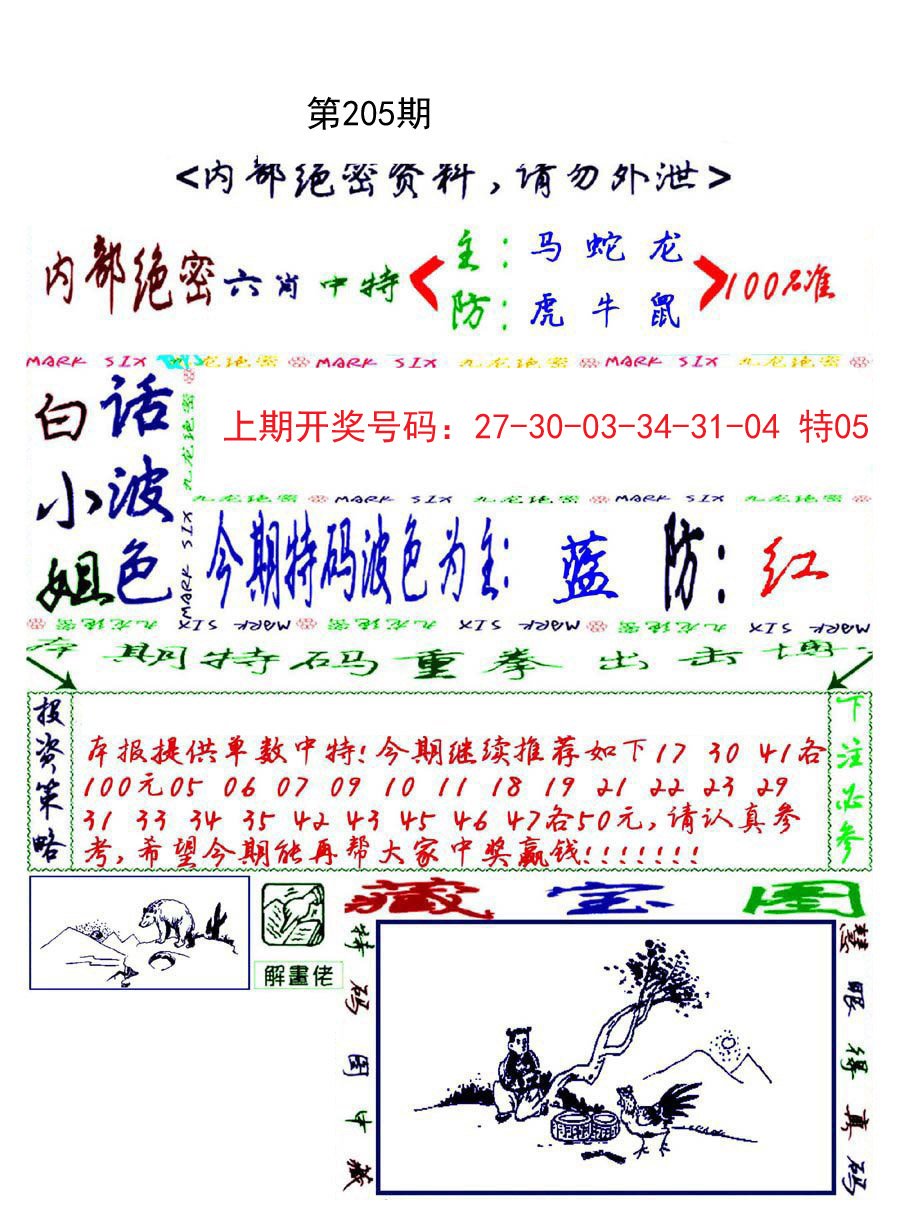 第205期
<内部绝密资料,请勿外泄>
内部绝密六肖中特
主:马 蛇 龙
防:虎 牛 鼠
100%准
MARK SIX 九龙绝密 MARK SIX 九龙绝密 MARK SIX 九龙绝密
白话
小波
姐色
九龙绝密
MARK SIX
上期开奖号码：27-30-03-34-31-04 特05
九龙绝密 MARK SIX 九龙绝密 MARK SIX 九龙绝密
今期特码波色为主: 蓝 防: 红
九龙绝密 MARK SIX 九龙绝密 MARK SIX 九龙绝密 MARK SIX
本期特码重拳出击博
投资策略
本报提供单数中特!今期继续推荐如下17 30 41各
100元05 06 07 09 10 11 18 19 21 22 23 29
31 33 34 35 42 43 45 46 47各50元,请认真参
考,希望今期能再帮大家中奖赢钱!!!!!!!
下注必参
解畫佬
藏宝图
特码图中藏
慧眼得真码